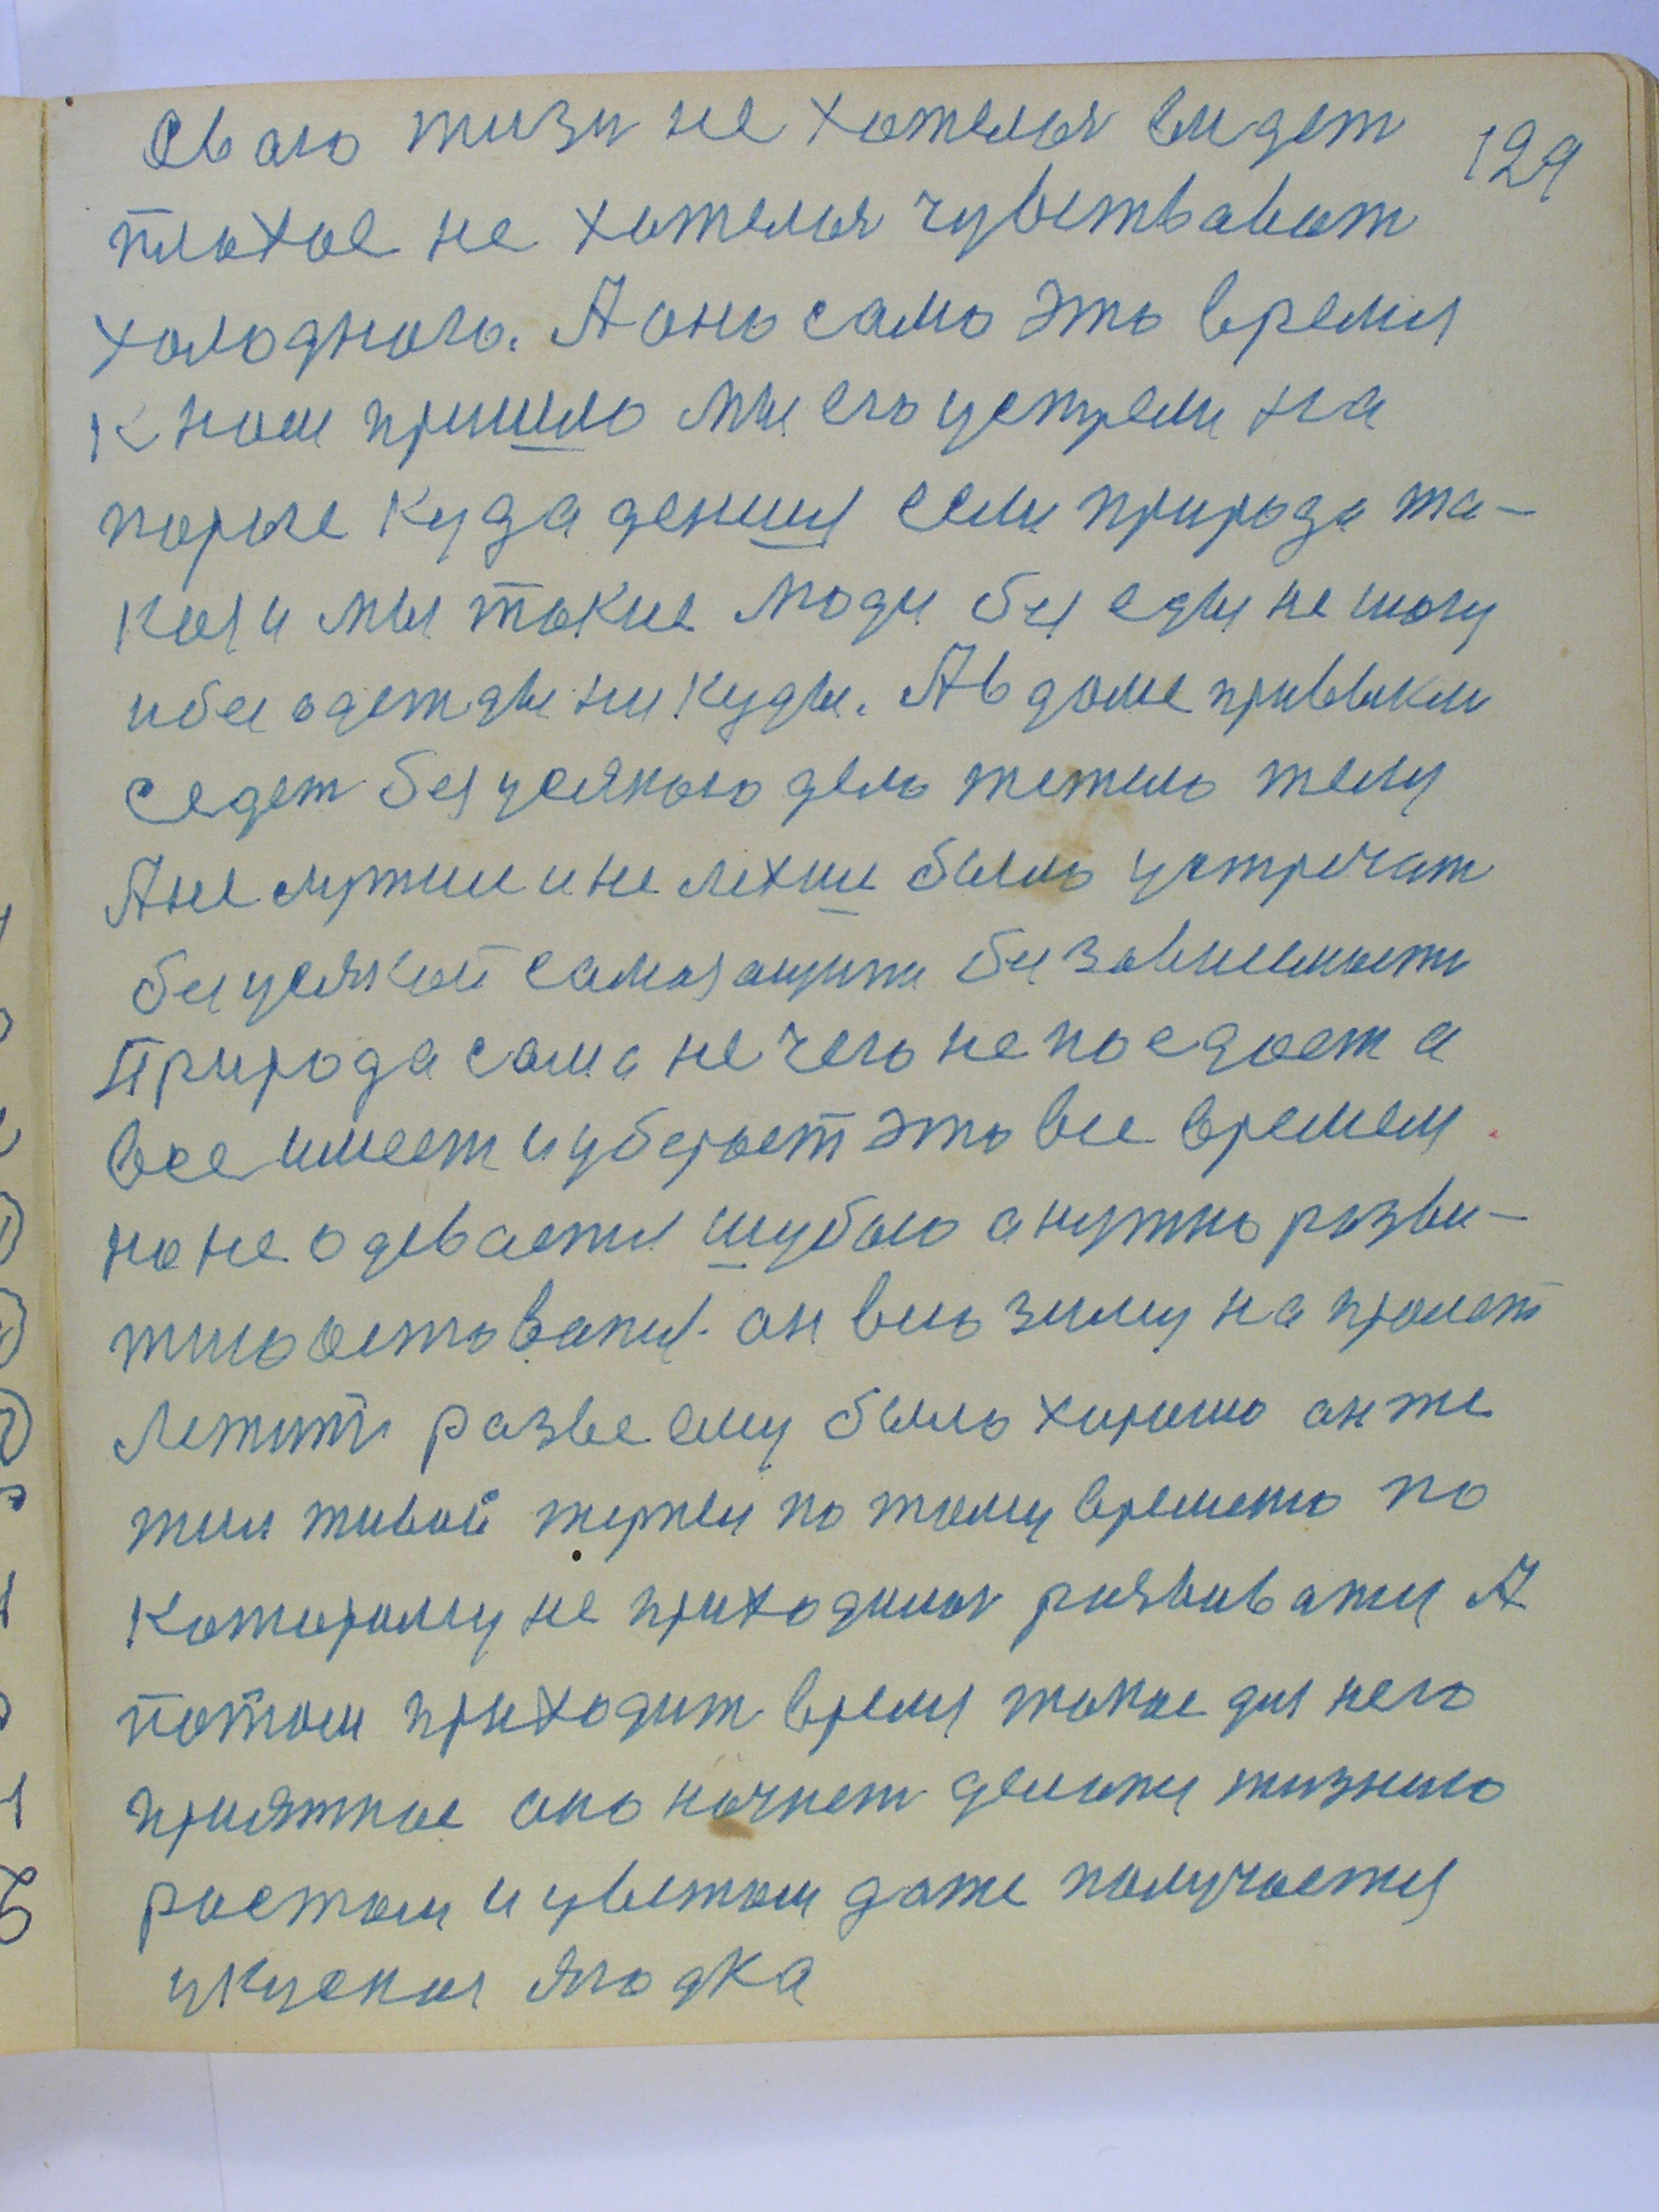 Сваю жизн не хотелоя видет
129
плохое не хотелоя чувствават
холодного. А оно само это время
к нам пришло мы его устрели на
пороге куда денися если природа та-
кая и мы такие люди без еды не шагу
и без одежды ни куды. А в доме привыкли
седет без усякого дела тежело телу
А не лутше и не лехше было устречат
без усякой самозащити без зависемости
Природа сама не чего не поедает а
все имеет и уберает это все времем
но не одевается шубою а нужно разви-
тию оставатся. он всю зиму на пролет
Лежит разве ему было хорошо он же
жил живой терпел по тому времето по
которому не приходилоя развиватся А
потом приходит время такое для него
приятное оно начнет делатся жизнею
ростом и цветом даже получается
укусная ягодка